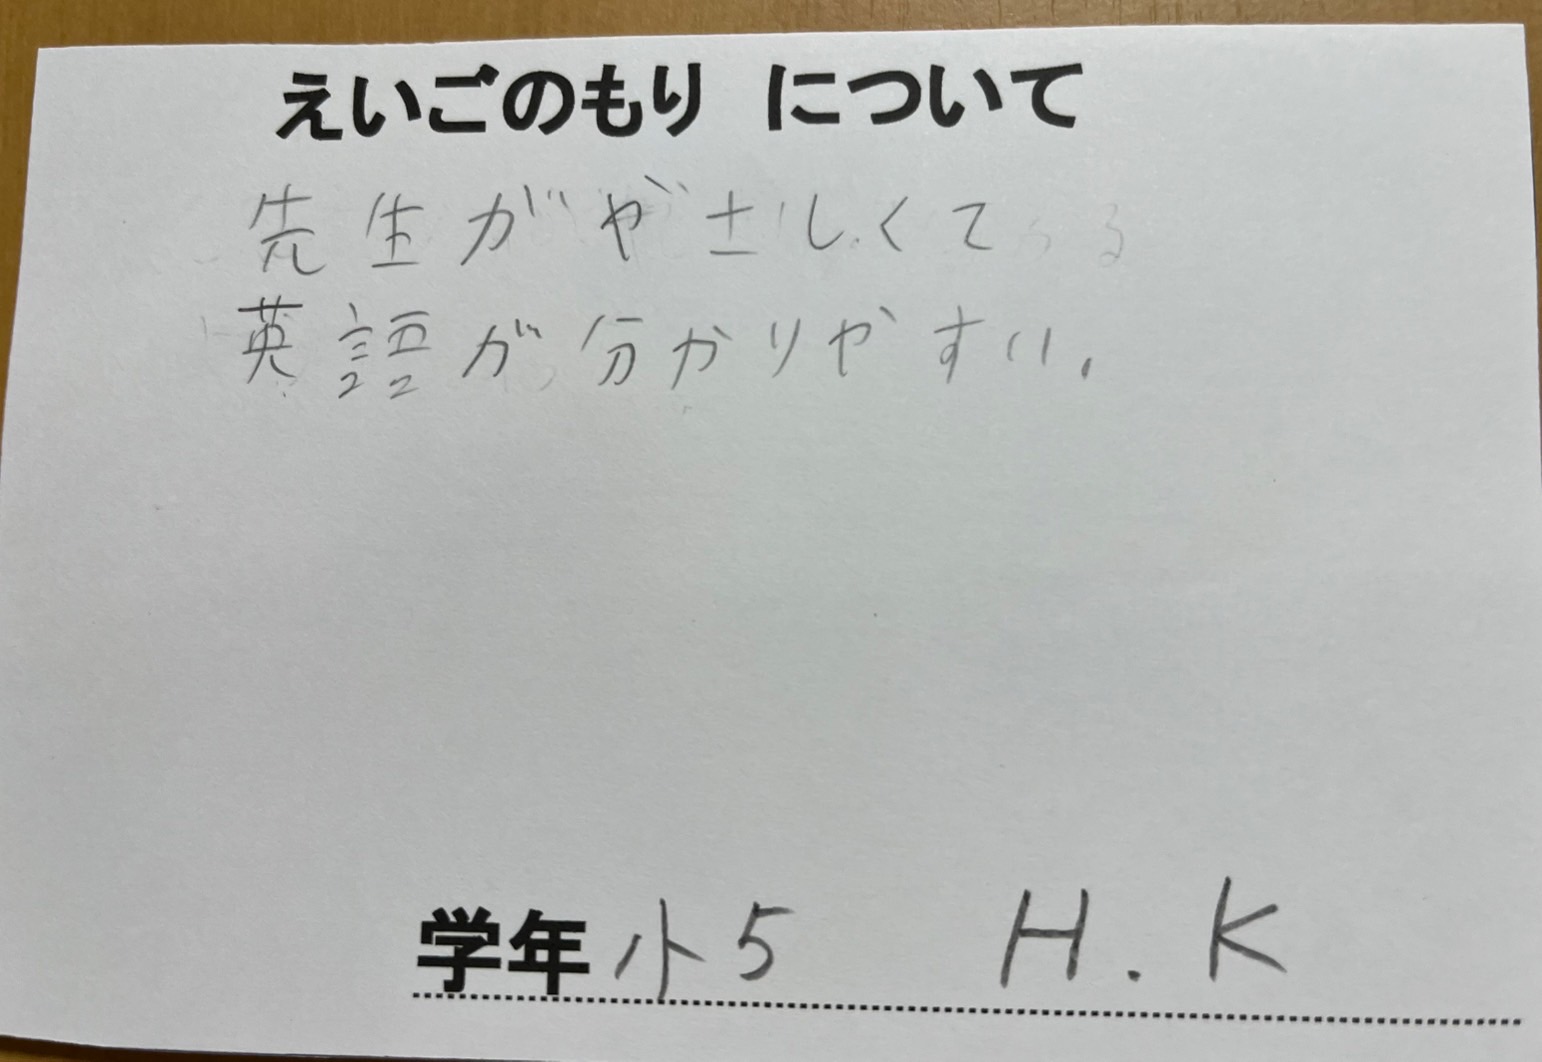 えいごのもり について
先生がやさしくて
英語が分かりやすい.
学年 小5 H.K